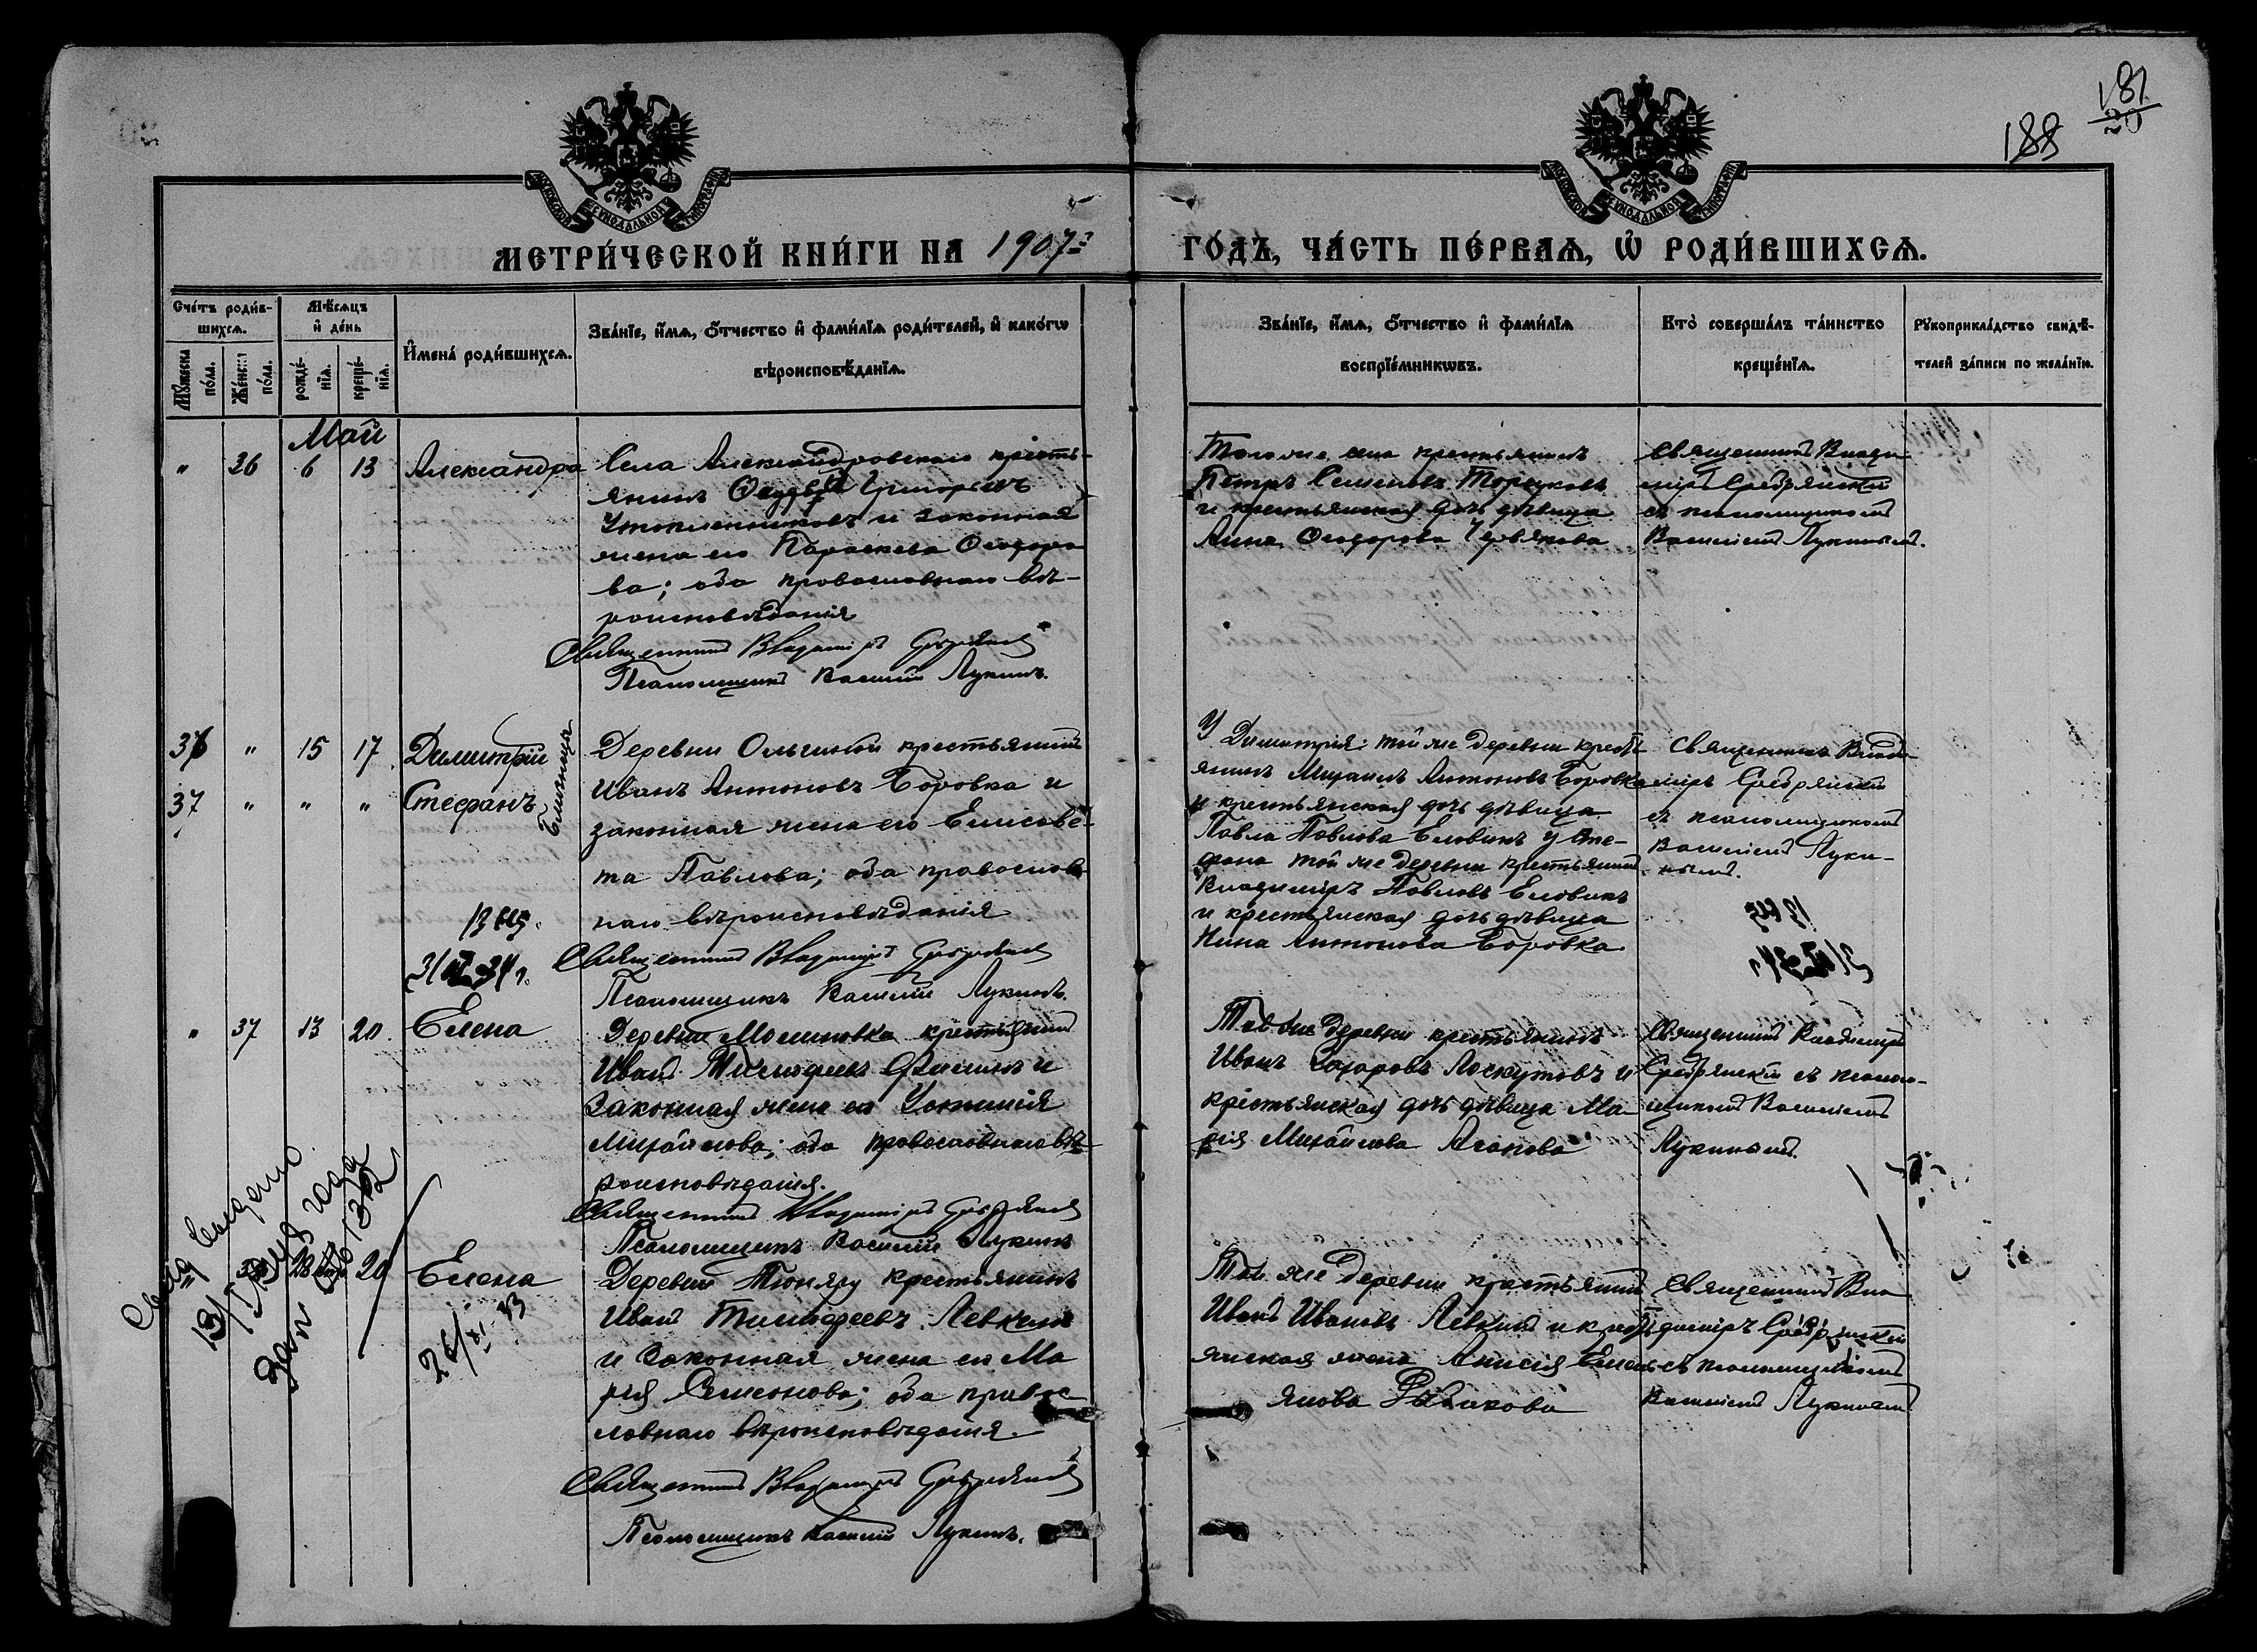 188
181
20
МОСКОВСКОЙ СѴНОДАЛЬНОЙ ТИПОГРАФІИ
МОСКОВСКОЙ СѴНОДАЛЬНОЙ ТИПОГРАФІИ
МЕТРИ́ЧЕСКОЙ КНИ́ГИ НА 1907 г
ГО́ДЪ, ЧА́СТЬ ПЕ́РВАѦ, Ѡ҆ РОДИ́ВШИХСѦ.
Сче́тъ роди́в-
шихсѧ.
Мꙋ́жеска
по́ла.
Же́нска
по́ла.
Мѣ́сѧцъ
и҆ де́нь
рожде́-
нїѧ.
креще́-
нїѧ.
И҆мена̀ роди́вшихсѧ.
Зва́нїе, и҆́мѧ, ѻ҆́тчество и҆ фами́лїѧ роди́телей, и҆ како́гѡ
вѣроисповѣ́данїѧ.
Зва́нїе, и҆́мѧ, ѻ҆́тчество и҆ фами́лїѧ
воспрїе́мникѡвъ.
Кто̀ соверша́лъ та́инство
креще́нїѧ.
Рꙋкоприкла́дство свидѣ́-
телей за́писи по жела́нїю.
Май
" 36 6 13 Александра
Села Александровскаго кресть-
янинъ Григорьевъ
Утопленниковъ и законная
жена его Параскева Ѳеодоро
ва; оба православнаго вѣ-
роисповѣданія
Священникъ Владиміръ Сребрянскій
Псаломщикъ Василій Лукинъ.
Того же села крестьянинъ
Петръ Семеновъ
и крестьянская дочь дѣвица
Анна Ѳеодорова Червякова
Священникъ Влади-
міръ Сребрянскій
съ псаломщикомъ
Василіемъ Лукинымъ.
36 " 15 17 Димитрій
37 " " " Стефанъ
Близнецы
Деревни Ольгиной крестьянинъ
Иванъ Антоновъ Боровка и
законная жена его Елисаве-
та Павлова; оба православ
наго вѣроисповѣданія
Священникъ Владиміръ Сребрянскій
Псаломщикъ Василій Лукинъ.
У Димитрія: той же деревни крест
янинъ Михаилъ Антоновъ Боровка
и крестьянская дочь дѣвица
Павла Павлова Еловикъ у Сте-
фана той же деревни крестьянинъ
Владиміръ Павловъ Еловикъ
и крестьянская дочь дѣвица
Нина Антонова Боровка.
Священникъ Влади-
міръ Сребрянскій
съ псаломщикомъ
Василіемъ Луки-
нымъ.
" 37 13 20 Елена
Деревни Молиновка крестьянинъ
Иванъ Тимофеевъ и
законная жена его Устинія
Михайлова; оба православнаго вѣ
роисповѣданія.
Священникъ Владиміръ Сребрянскій
Псаломщикъ Василій Лукинъ
Той же деревни крестьянинъ
Иванъ Захаровъ Лоскутовъ и
крестьянская дочь дѣвица Ма
рія Михайлова Агапова
Священникъ Владиміръ
Сребрянскій съ псалом-
щикомъ Василіемъ
Лукинымъ.
20 Елена
Деревни Тюняру крестьянинъ
Иванъ Тимофеевъ Левкинъ
и законная жена его Ма
рія Семенова; оба право
славнаго вѣроисповѣданія.
Священникъ Владиміръ Сребрянскій
Псаломщикъ Василій Лукинъ.
Той же деревни крестьянинъ
Иванъ Ивановъ Левкинъ и крест
янская жена Анисія
Священникъ Вла
диміръ Сребрянскій
съ псаломщикомъ
Василіемъ Лукинымъ